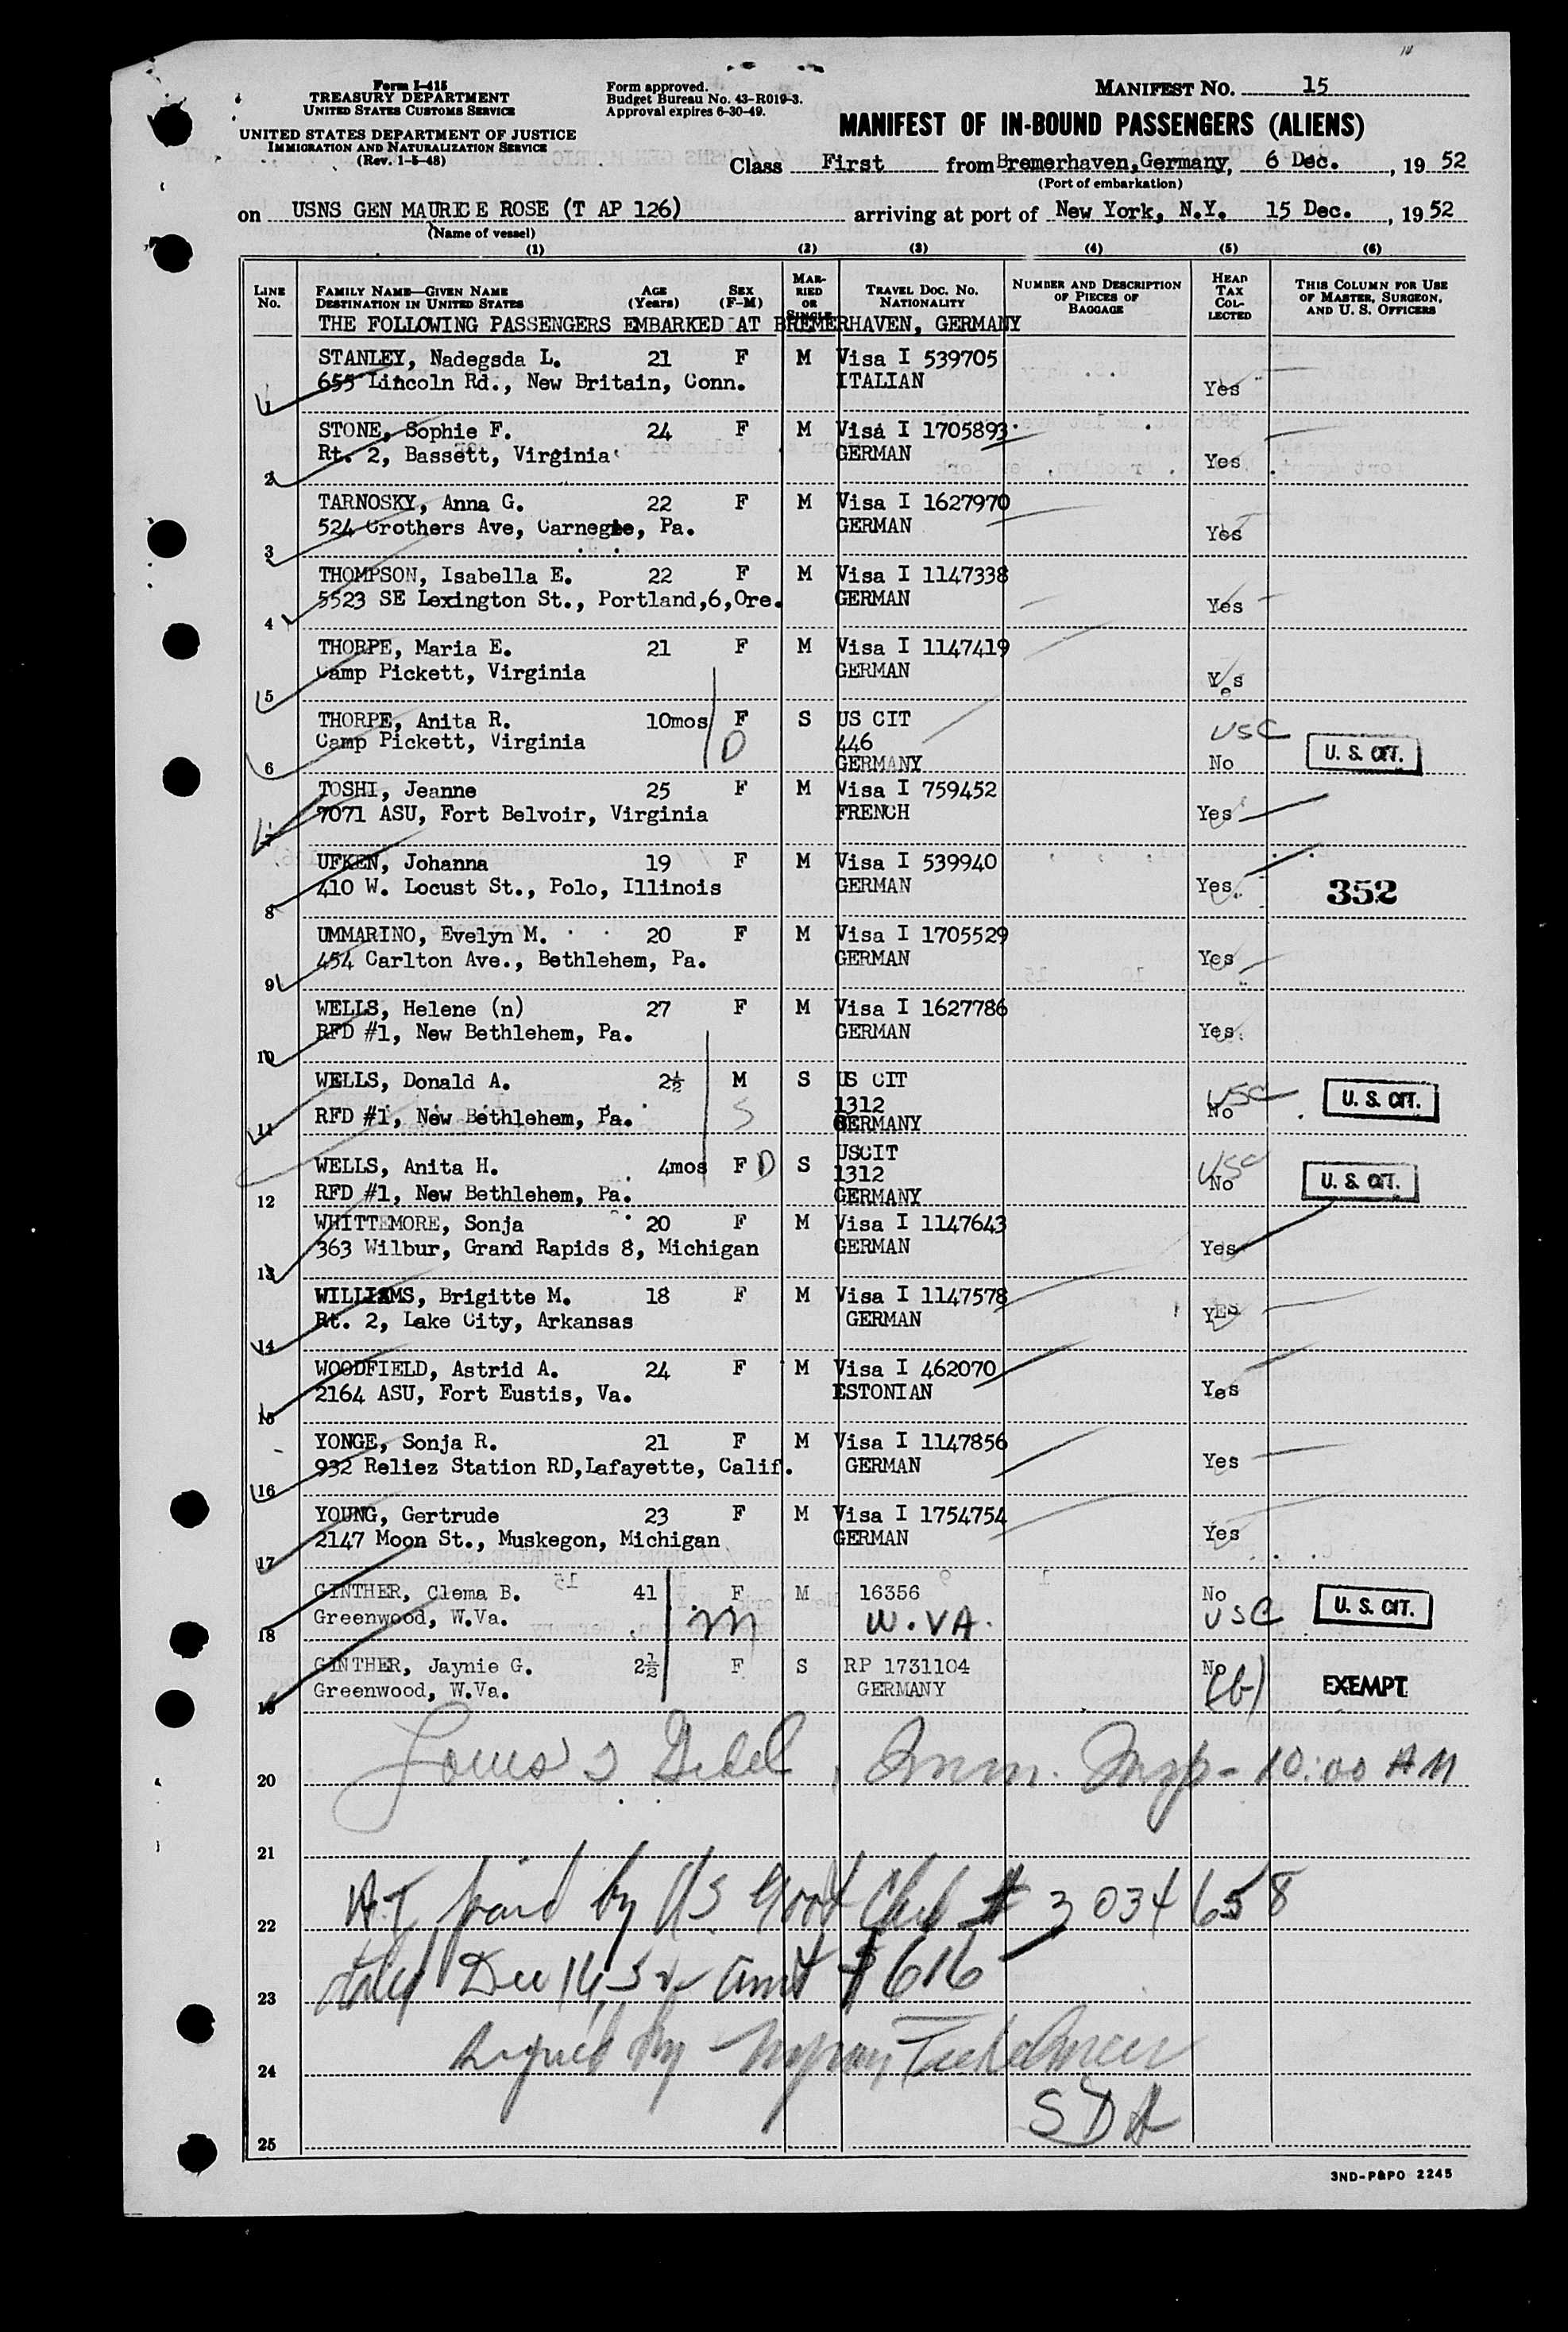 Form I-415
TREASURY DEPARTMENT
UNITED STATES CUSTOMS SERVICE
UNITED STATES DEPARTMENT OF JUSTICE
IMMIGRATION AND NATURALIZATION SERVICE
(Rev. 1-5-48)
Form approved.
Budget Bureau No. 43-R019-3.
Approval expires 6-30-49.
MANIFEST NO. 15
MANIFEST OF IN-BOUND PASSENGERS (ALIENS)
Class First from Bremerhaven, Germany, 6 Dec., 1952
(Port of embarkation)
on USNS GEN MAURICE ROSE (T AP 126) arriving at port of New York, N.Y. 15 Dec., 1952
(Name of vessel)
(1) (2) (3) (4) (5) (6)
LINE NO. FAMILY NAME—GIVEN NAME DESTINATION IN UNITED STATES AGE (Years) SEX (F-M) MARRIED OR SINGLE TRAVEL DOC. NO. NATIONALITY NUMBER AND DESCRIPTION OF PIECES OF BAGGAGE HEAD TAX COLLECTED THIS COLUMN FOR USE OF MASTER, SURGEON, AND U. S. OFFICERS
THE FOLLOWING PASSENGERS EMBARKED AT BREMERHAVEN, GERMANY
STANLEY, Nadegsda L. 21 F M Visa I 539705
1 655 Lincoln Rd., New Britain, Conn. ITALIAN Yes
STONE, Sophie F. 24 F M Visa I 1705893
2 Rt. 2, Bassett, Virginia GERMAN Yes
TARNOSKY, Anna G. 22 F M Visa I 1627970
3 524 Crothers Ave, Carnegie, Pa. GERMAN Yes
THOMPSON, Isabella E. 22 F M Visa I 1147338
4 5523 SE Lexington St., Portland,6,Ore. GERMAN Yes
THORPE, Maria E. 21 F M Visa I 1147419
5 Camp Pickett, Virginia GERMAN Yes
THORPE, Anita R. 10mos F S US CIT USC
Camp Pickett, Virginia D 446
6 GERMANY No U. S. CIT.
TOSHI, Jeanne 25 F M Visa I 759452
7 7071 ASU, Fort Belvoir, Virginia FRENCH Yes
UFKEN, Johanna 19 F M Visa I 539940
8 410 W. Locust St., Polo, Illinois GERMAN Yes 352
UMMARINO, Evelyn M. 20 F M Visa I 1705529
9 454 Carlton Ave., Bethlehem, Pa. GERMAN Yes
WELLS, Helene (n) 27 F M Visa I 1627786
10 RFD #1, New Bethlehem, Pa. GERMAN Yes
WELLS, Donald A. 2½ M S US CIT USC
S 1312 No U. S. CIT.
11 RFD #1, New Bethlehem, Pa. GERMANY
WELLS, Anita H. 4mos F D S USCIT USC
1312 No U. S. CIT.
12 RFD #1, New Bethlehem, Pa. GERMANY
WHITTEMORE, Sonja 20 F M Visa I 1147643
13 363 Wilbur, Grand Rapids 8, Michigan GERMAN Yes
WILLIAMS, Brigitte M. 18 F M Visa I 1147578
14 Rt. 2, Lake City, Arkansas GERMAN YES
WOODFIELD, Astrid A. 24 F M Visa I 462070
15 2164 ASU, Fort Eustis, Va. ESTONIAN Yes
YONGE, Sonja R. 21 F M Visa I 1147856
16 932 Reliez Station RD,Lafayette, Calif. GERMAN Yes
YOUNG, Gertrude 23 F M Visa I 1754754
17 2147 Moon St., Muskegon, Michigan GERMAN Yes
GINTHER, Clema B. 41 F M 16356 No
18 Greenwood, W.Va. m W.VA. USC U. S. CIT.
GINTHER, Jaynie G. 2½ F S RP 1731104 No
19 Greenwood, W.Va. GERMANY (b) EXEMPT
20 Louis Imm. Insp - 10:00 AM
21
22 H.T paid by US Govt Chek # 3034658
23 Dec 14, 52 amt $616
24 signed by
SDA
25
3ND-P&PO 2245